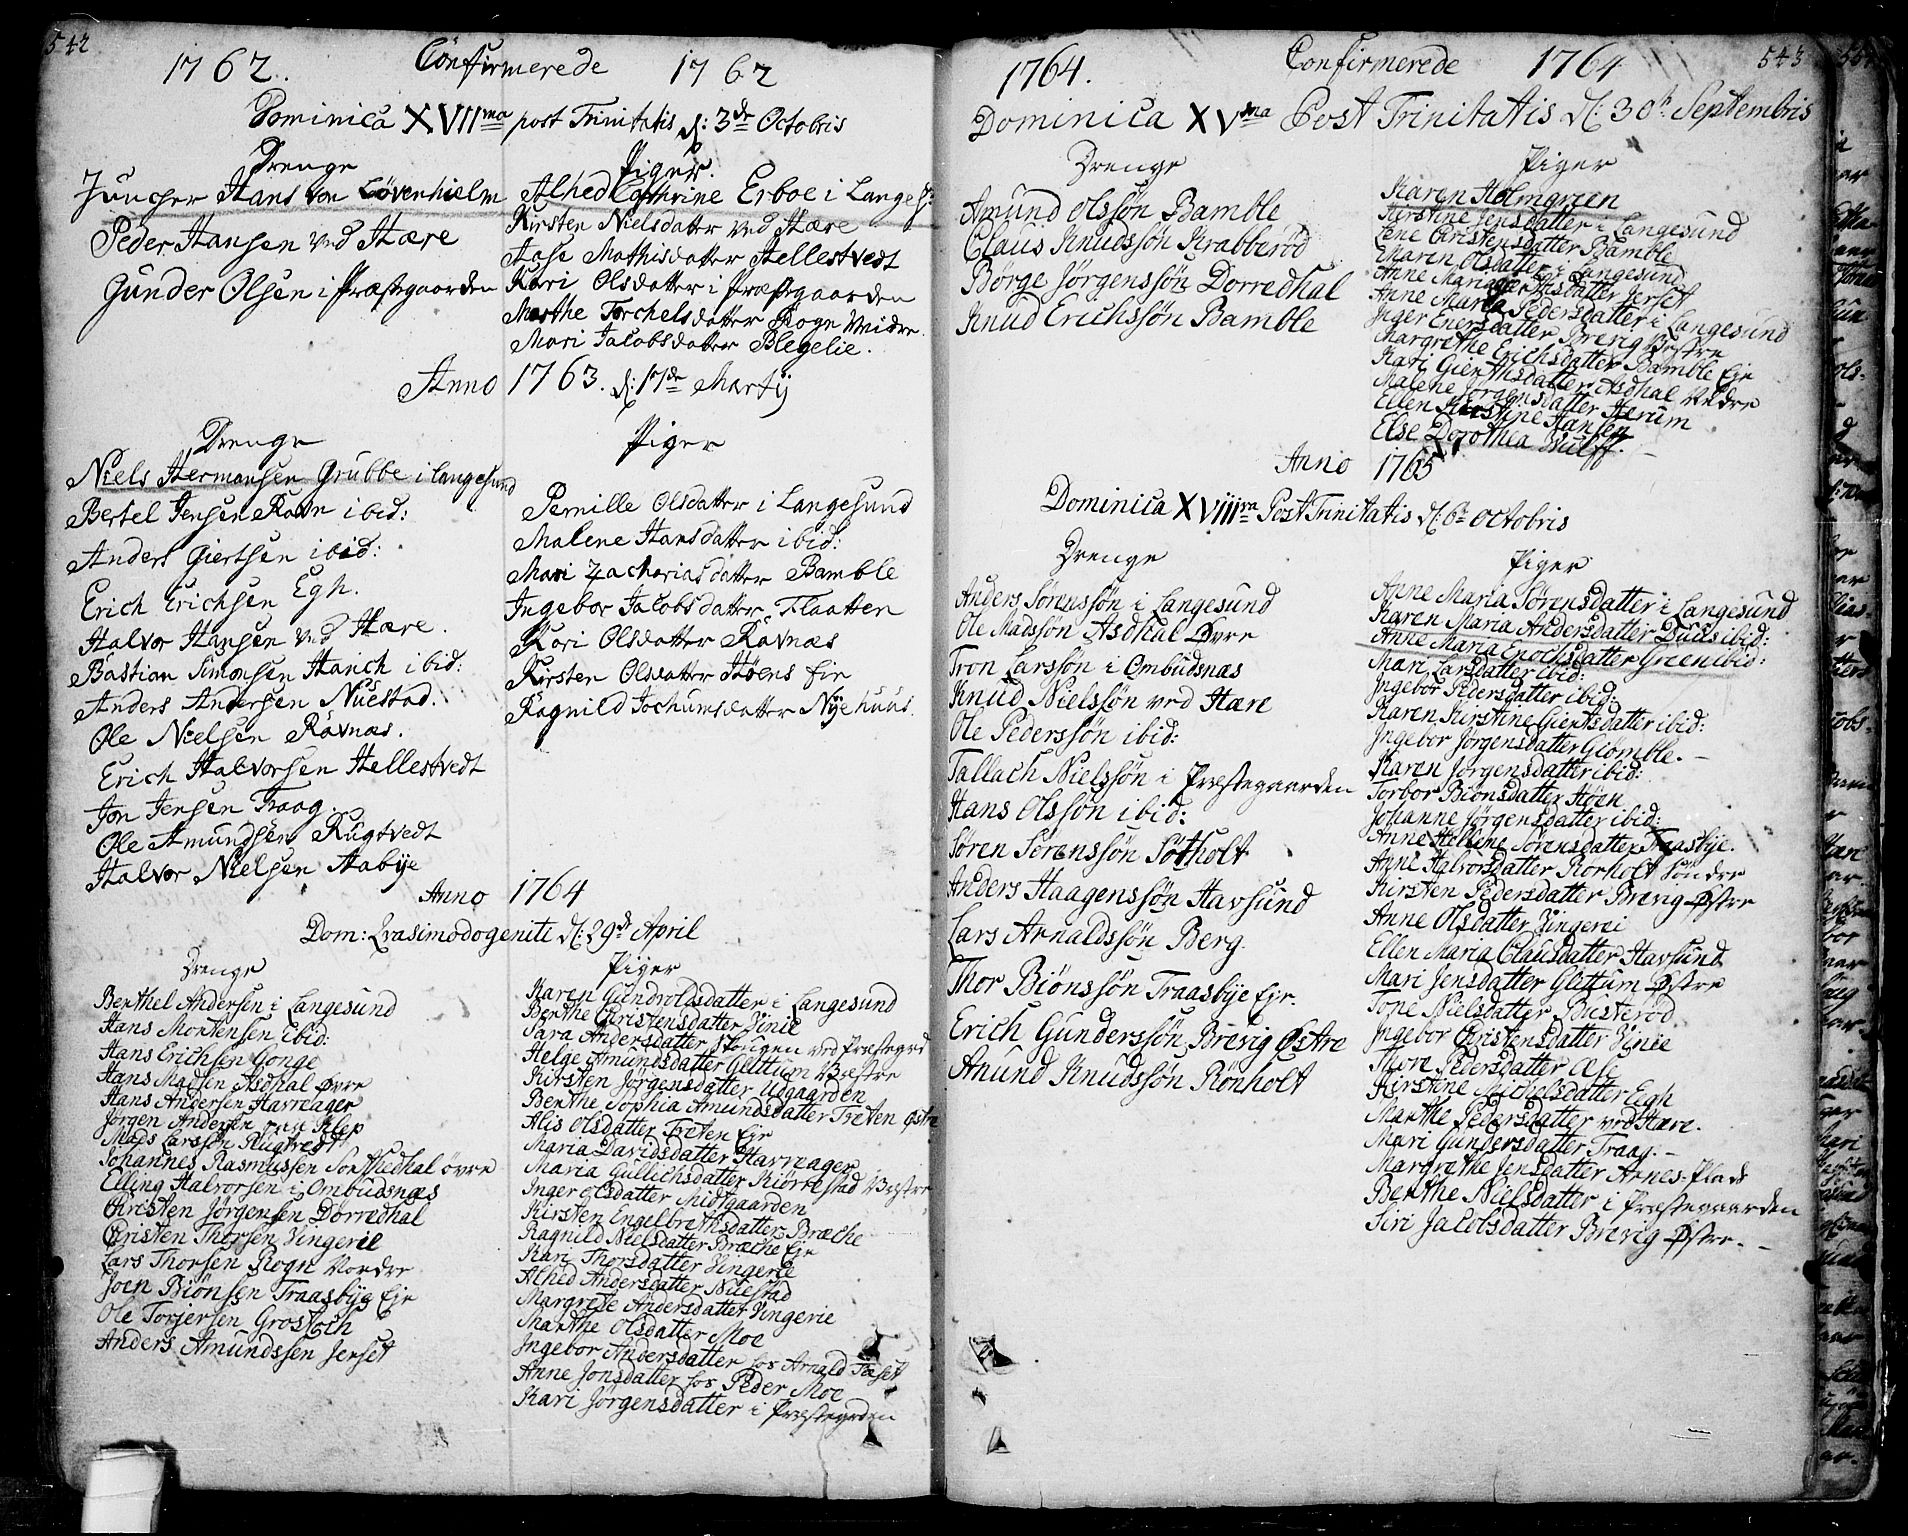 542
1762. Confirmerede 1762
Dominica XVIIma post Trinitatis d: 3de Octobris
Drenge
Juncher Hans von Lövenhielm
Peder Hansen ved Hære
Gunder Olsen i Præstegaarden
Piger.
Alhed Cathrine Erboe i Langes:
Kirsten Nielsdatter ved Hære
Aase Mathisdatter Hellestvedt
Kari Olsdatter i Præstegaarden
Marthe Torchelsdatter Rogn Neidre
Mari Jacobsdatter Blegelie.
Anno 1763. d: 17de Martij
Drenge
Niels Hermansen Grubbe i Langesund
Bertel Jensen Ravn ibid:
Anders Giertsen ibid:
Erich Erichsen Egh.
Halvor Hansen ved Hære.
Bastian Simonsen Hanch ibid:
Anders Andersen Nuestad.
Ole Nielsen Råvnæs.
Erich Halvorsen Hellestvedt
Jon Jensen Traag.
Ole Amundsen Rugtvedt
Halvor Nielsen Aabye
Piger
Pernille Olsdatter i Langesund
Malene Hansdatter ibid:
Mari Zachariasdatter Bamble
Ingebor Jacobsdatter Flaatten
Kari Olsdatter Råvnæs
Kirsten Olsdatter Høens Eie
Ragnild Jochumsdatter Nyehuus.
Anno 1764
Dom: Qvasimodogeniti d: 29de April
Drenge
Berthel Andersen i Langesund
Hans Mortensen ibid:
Hans Erichsen Gonge
Hans Madsen Asdhal Øvre
Hans Andersen Havreager
Jørgen Andersen Klep
Mads Larssøn Rugtvedt
Johannes Rasmussen Sørthedhal övre
Elling Halvorsen i Ombudsnæs
Christen Jørgensen Dorredhal
Christen Thorsen Vingerie
Lars Thorsen Rogn Nordre
Joen Biönsen Traasbye Eje
Ole Torjersen Grostoch
Anders Amundssen Jerset
Piger
Karen Gundroldsdatter i Langesund
Berthe Christensdatter Vinie
Sara Andersdatter Skougen ved Præstegrd
Helge Amundsdatter Glittum Væstre
Kirsten Jørgensdatter Udgaarden
Berthe Sophia Amundsdatter Treten Østre
Alis Olsdatter Treten Eje
Maria Davidsdatter Havreager
Maria Gullichsdatter Kiörrestad Væstre
Inger Olsdatter Midtgaarden
Kirsten Engelbrethsdatter Bræche
Ragnild Nielsdatter Bræche Eje
Kari Thorsdatter Vingerie
Alhed Andersdatter Nuestad
Margrete Andersdatter Vingerie
Marthe Olsdatter Moe
Ingebor Andersdatter hos Arnold Taset
Anne Jonsdatter hos Peder Moe
Kari Jørgensdatter i Præstegrden
1764. Confirmerede 1764 543
Dominica XVma Post Trinitatis d: 30te Septembris
Drenge
Amund Olssøn Bamble
Claus Knudssøn Krabberöd
Börge Jörgenssön Dorredhal
Knud Erichssön Bamble
Piger
Karen Holmgreen
Kirstine Jensdatter i Langesund
Lene Christensdatter Bamble
Maren Olsdatter i Langesund
Anne Maria Giertsdatter Jerset
Anne Maria Pedersdatter i Langesund
Inger Enersdatter Brevig Væstre
Margrethe Erichsdatter Bamble Eje
Kari Giertsdatter Asdhal Nedre
Malene Jörgensdatter Herum
Ellen Kirstine Hansen
Else Dorothea Wulff.
Anno 1765
Dominica XVIIIva Post Trinitatis d: 6te Octobris
Drenge
Anders Sørenssøn i Langesund
Ole Madssøn Asdhal Øvre
Tron Larssøn i Ombudsnæs
Knud Nielssøn ved Hære
Ole Pederssøn ibid:
Tallach Nielssøn i Præstegaarden
Hans Olssøn ibid:
Søren Sørenssøn Sötholt
Anders Haagenssøn Havsund
Lars Arnaldssøn Berg.
Thor Biönssøn Traasbye Eje.
Erich Gunderssøn Brevig Østre
Anund Knudssøn Rönholt
Piger
Anne Maria Sörensdatter i Langesund
Karen Maria Andersdatter Duus ibid:
Anne Maria Enochsdatter Green ibid:
Mari Larsdatter ibid:
Ingebor Pedersdatter ibid:
Karen Kirstine Giertsdatter ibid:
Ingebor Jørgensdatter Giomble.
Karen Jørgensdatter ibid:
Torbor Biönsdatter Høen
Johanne Jørgensdatter ibid:
Anne Hellene Sörensdatter Traasbye.
Anne Halvorsdatter Rorholt Söndre
Kirsten Pedersdatter Brevig Østre
Anne Olsdatter Vingerei
Ellen Maria Clausdatter Havsund
Mari Jensdatter Glittum Østre
Tone Nielsdatter Busteröd
Ingebor Christensdatter Vinie
Thore Pedersdatter Ose
Kirstine Michelsdatter Egh
Marthe Pedersdatter ved Hære.
Mari Gundersdatter Traag.
Margrethe Jensdatter Arnes-Plads
Berthe Nielsdatter i Præstegaarden
Siri Jacobsdatter Brevig Østre.